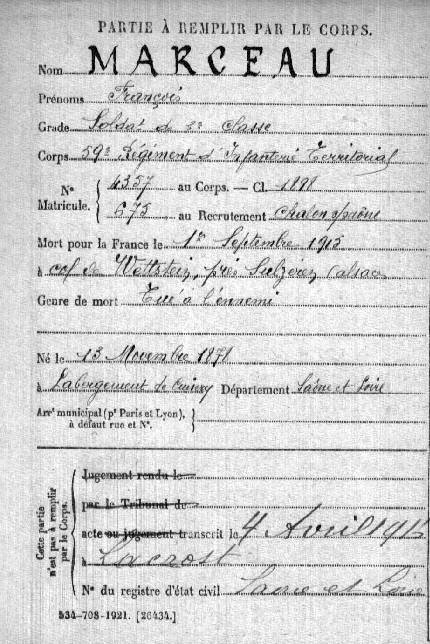 PARTIE À REMPLIR PAR LE CORPS.
Nom MARCEAU
Prénoms François
Grade Soldat de 2e Classe
Corps 59e Régiment d'Infanterie Territorial
N° Matricule. 4357 au Corps. — Cl. 1898
675 au Recrutement Chalon s/Saône
Mort pour la France le 1er Septembre 1915
à col de Wettstein, près Sulzeren (alsace
Genre de mort Tué à l'ennemi
Né le 13 Novembre 1878
à Labergement de Cuisery Département Saône et Loire
Arrt municipal (pr Paris et Lyon), à défaut rue et N°.
Cette partie n'est pas à remplir par le Corps.
Jugement rendu le
par le Tribunal de
acte ou jugement transcrit le 4 Avril 191
à Lacrost
N° du registre d'état civil Saône et Loire
534-708-1921. [26434.]